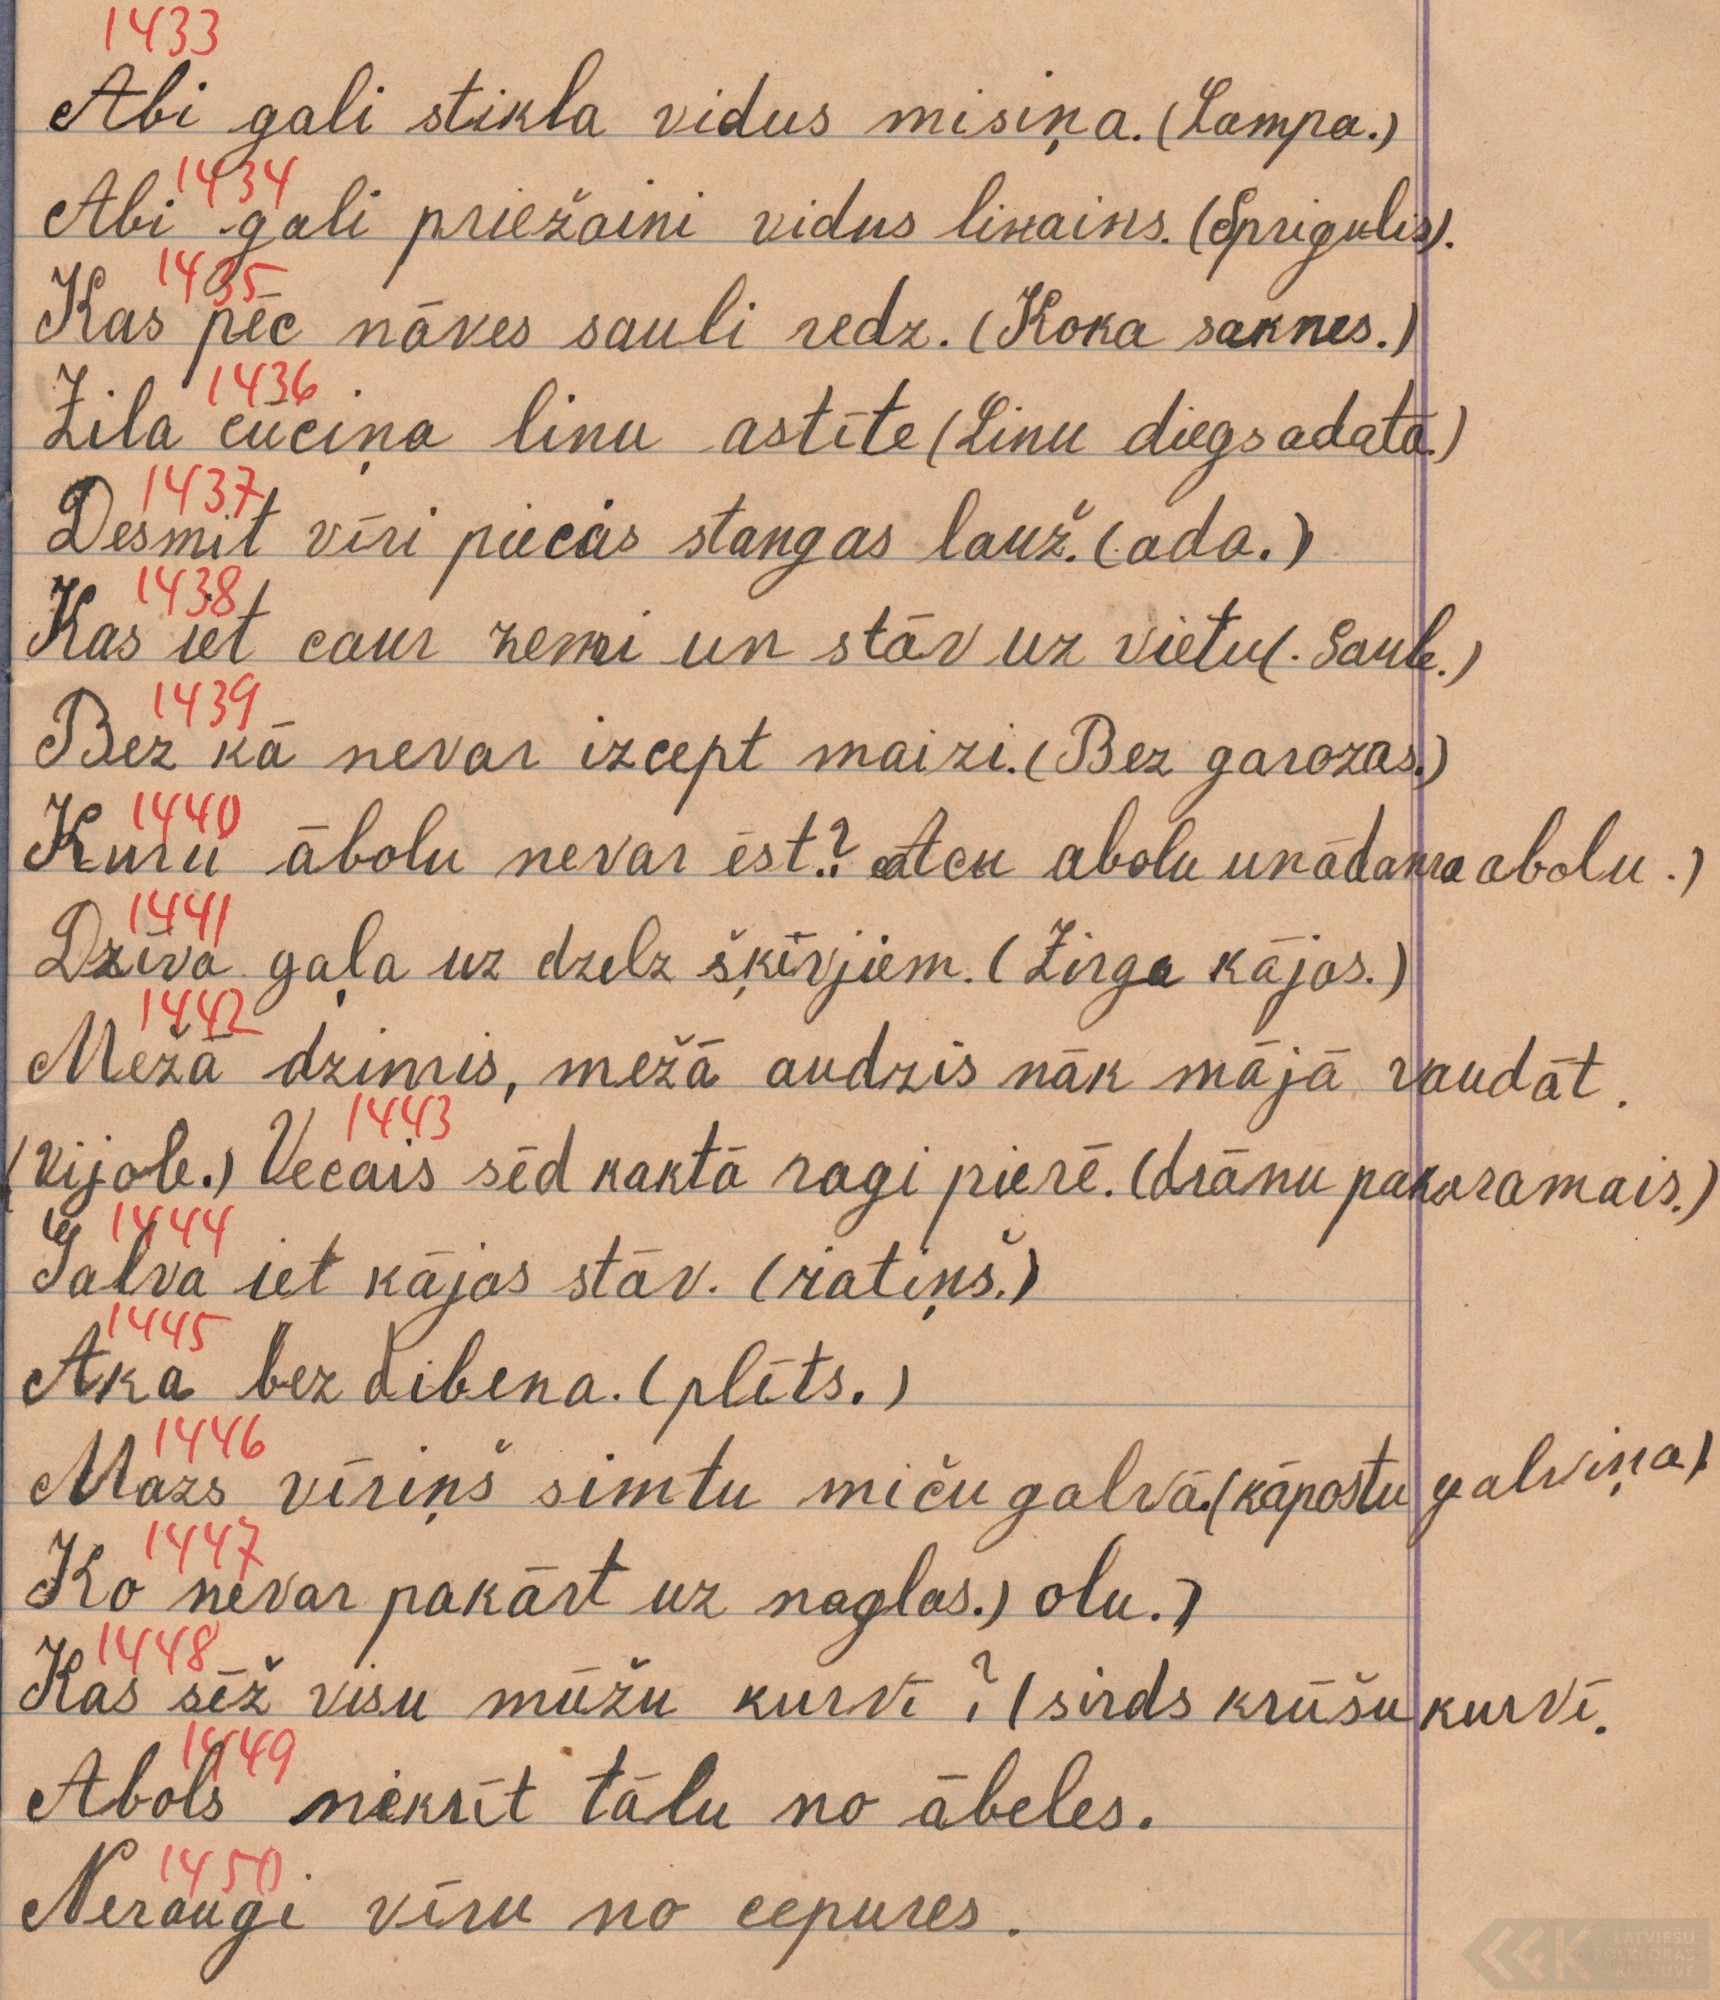 1433
Abi gali stikla vidus misiņa. (Lampa.)
1434
Abi gali priežaini vidus linains. (Sprigulis).
1435
Kas pēc nāves sauli redz. (Koka saknes.)
1436
Zila cūciņa linu astīte (Linu diegs adatā.)
1437
Desmit vīri piecas stangas lauž. (ada.)
1438
Kas iet caur zemi un stāv uz vietu (. Saule.)
1439
Bez kā nevar izcept maizi. (Bez garozas.)
1440
Kuru ābolu nevar ēst? Acu abolu un ādama abolu.)
1441
Dzīva gaļa uz dzelz šķīvjiem. (Zirga kājas.)
1442
Mežā dzimis, mežā audzis nāk mājā raudāt.
1443
(vijole.) Vecais sēd kaktā ragi pierē. (drānu pakaramais.)
1444
Galva iet kājas stāv. (ratiņš.)
1445
Aka bez dibena. (plīts.)
1446
Mazs vīriņš simtu miču galvā. (kāpostu galviņa)
1447
Ko nevar pakārt uz naglas.) olu.)
1448
Kas sēž visu mūžu kurvī? (sirds krūšu kurvī.
1449
Abols nekrīt tālu no ābeles.
1450
Neraugi vīru no cepures.
LATVIEŠU
FOLKLORAS
KRĀTUVE